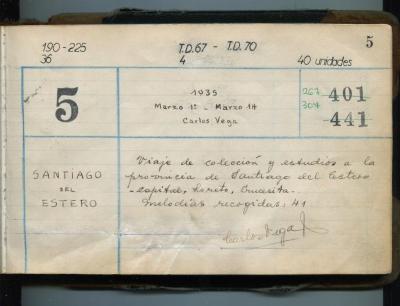 5
190-225 T.D.67 - T.D.70
36 4 40 unidades
5
1935
Marzo 1º - Marzo 14
Carlos Vega
267 401
307 441
SANTIAGO
DEL
ESTERO
Viaje de colección y estudios a la
provincia de Santiago del Estero
-capital, Loreto, Brucsita.
Melodías recogidas: 41
Carlos Vega